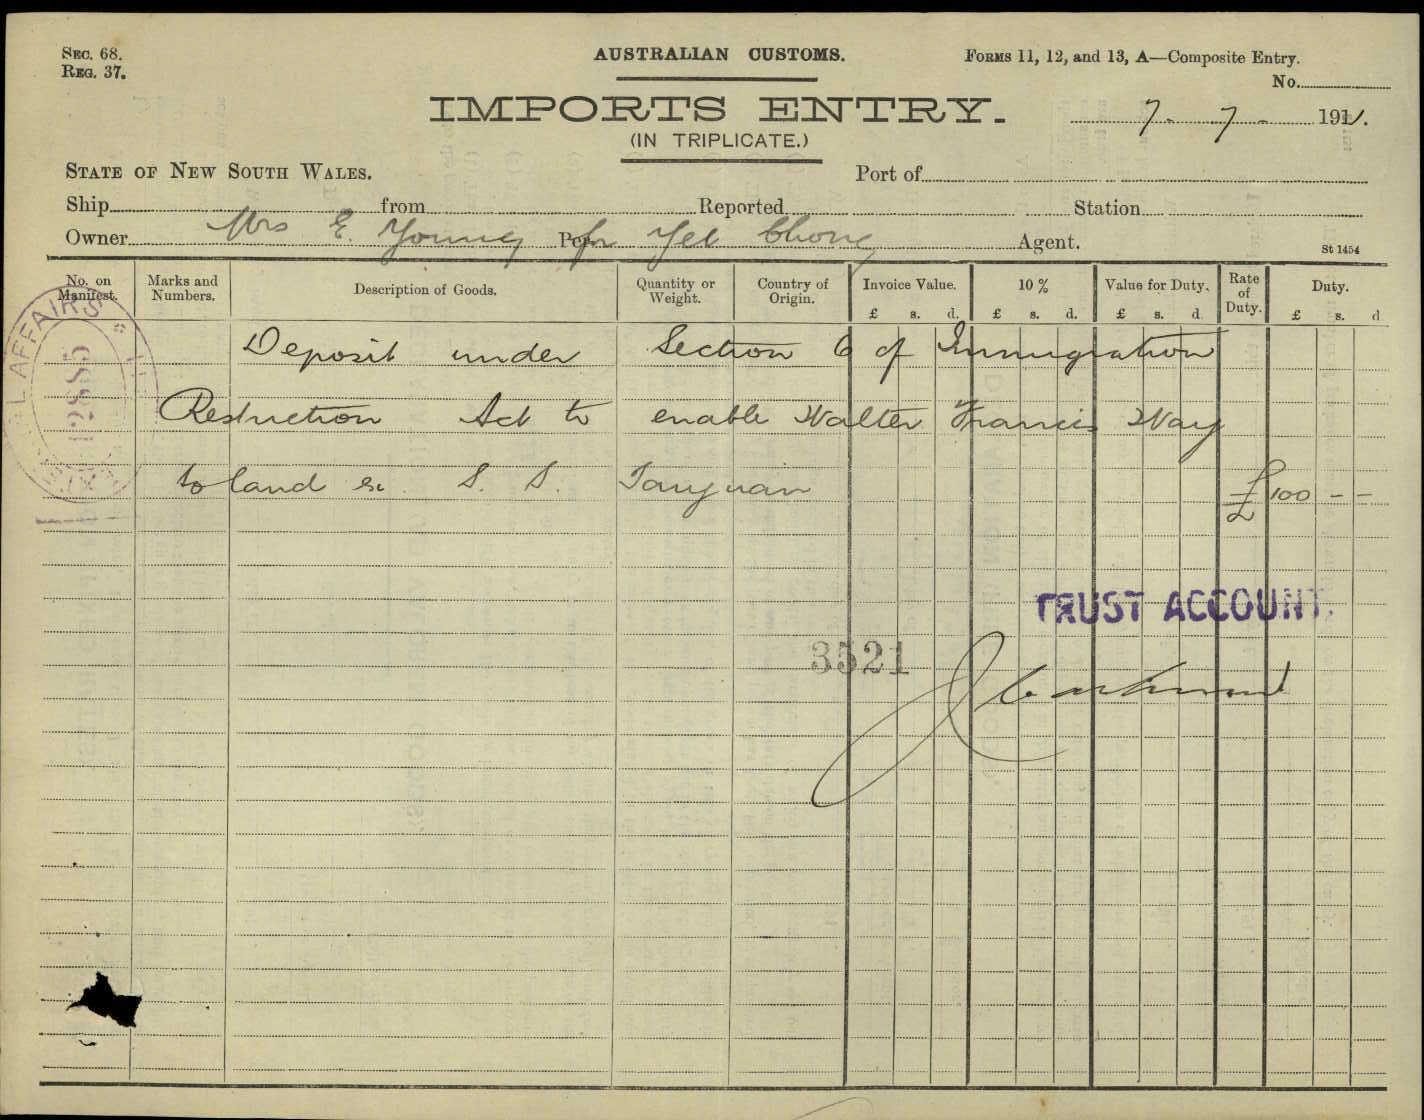 SEC. 68.
REG. 37.
AUSTRALIAN CUSTOMS.
FORMS 11, 12, and 13, A—Composite Entry.
No.
IMPORTS ENTRY.
7. 7. 191
(IN TRIPLICATE.)
STATE OF NEW SOUTH WALES.
Port of
Ship from Reported Station
Owner Mrs E. Young Per for Yet Chong Agent.
St 1454
No. on Manifest.
Marks and Numbers.
Description of Goods.
Quantity or Weight.
Country of Origin.
Invoice Value.
10 %
Value for Duty.
Rate of Duty.
Duty.
£ s. d. £ s. d. £ s. d £ s. d
AFFAIRS
Deposit under Section 6 of Immigration
Restriction Act to enable Walter Francis Way
to land ex S. S. Taiyuan £ 100 - -
TRUST ACCOUNT.
3521